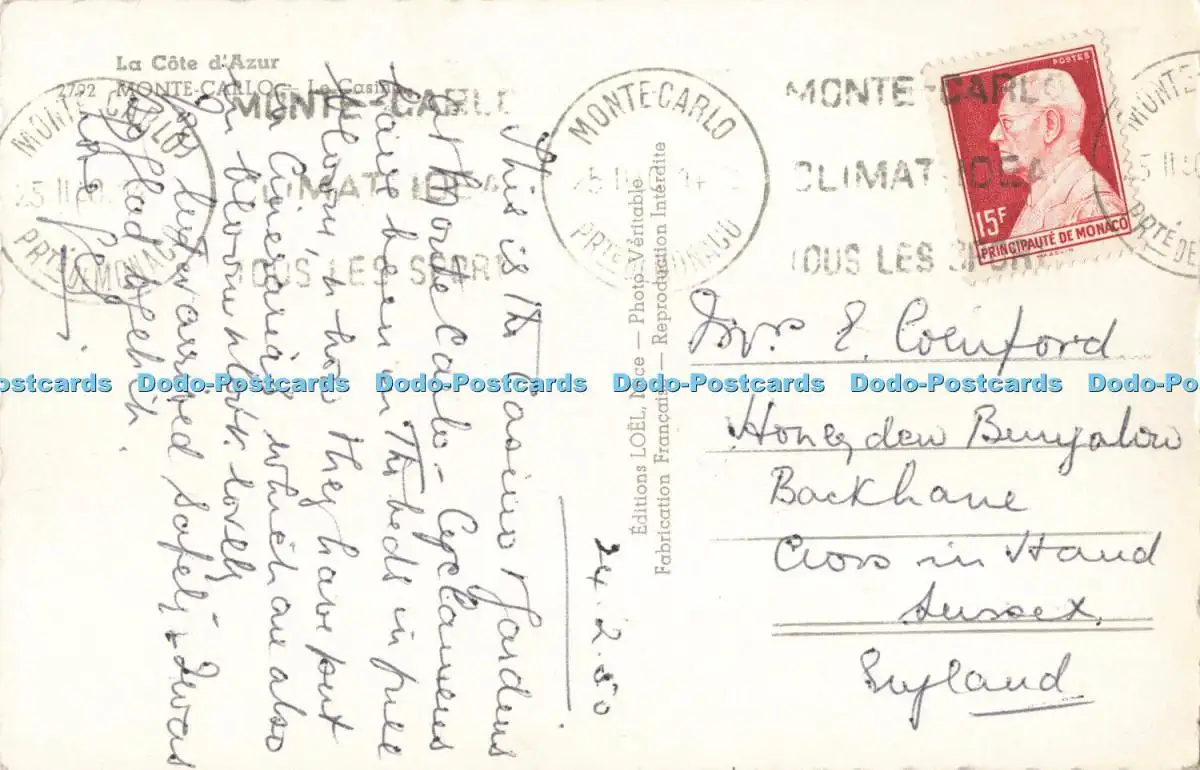 La Côte d'Azur
2792 MONTE-CARLO - Le Casino
MONTE-CARLO
25 II 50
PRTÉ DE MONACO
MONTE-CARLO
CLIMAT IDEA
TOUS LES SPORT
MONTE-CARLO
PRTÉ DE MONACO
MONTE-CARLO
CLIMAT IDEA
TOUS LES SPOR
MONTE
5 II 5
PRTÉ DE
POSTES
15F
PRINCIPAUTÉ DE MONACO
24.2.50
This is the Casino Gardens
at Monte Carlo - Cyclamens
have been in the beds in full
bloom, & now they have put
in Cinerarias which are also
in bloom & look lovely
arrived safely - I was
so glad
Éditions LOËL, Nice — Photo Véritable
Fabrication Français — Reproduction Interdite
Mrs. E. Cornford
Honeydew Bungalow
Back Lane
Cross in Hand
Sussex
England
Dodo-Postcards Dodo-Postcards Dodo-Postcards Dodo-Postcards Dodo-Postcards Dodo-Po